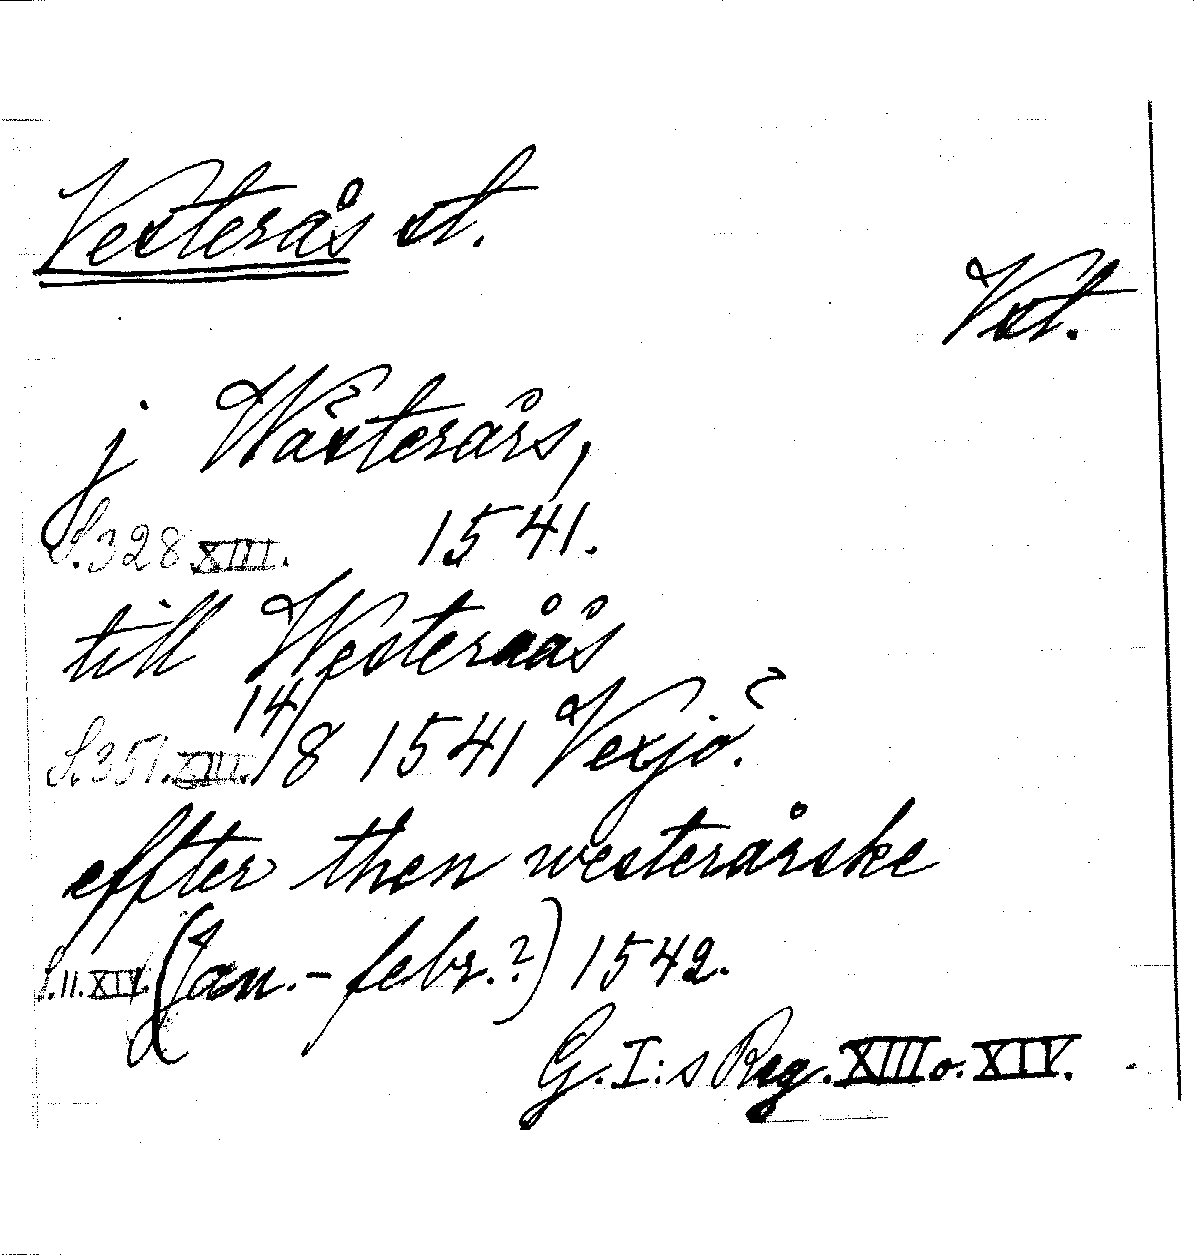 Vesterås st.
Vst.
j Wästerårs,
S.328.XIII. 1541.
till Westeråås
S.351.XIII. 14/8 1541 Vexjö.
effter then westerårske
S.11.XIV. (Jan.-febr.?) 1542.
G.I:s Reg. XIII o. XIV.